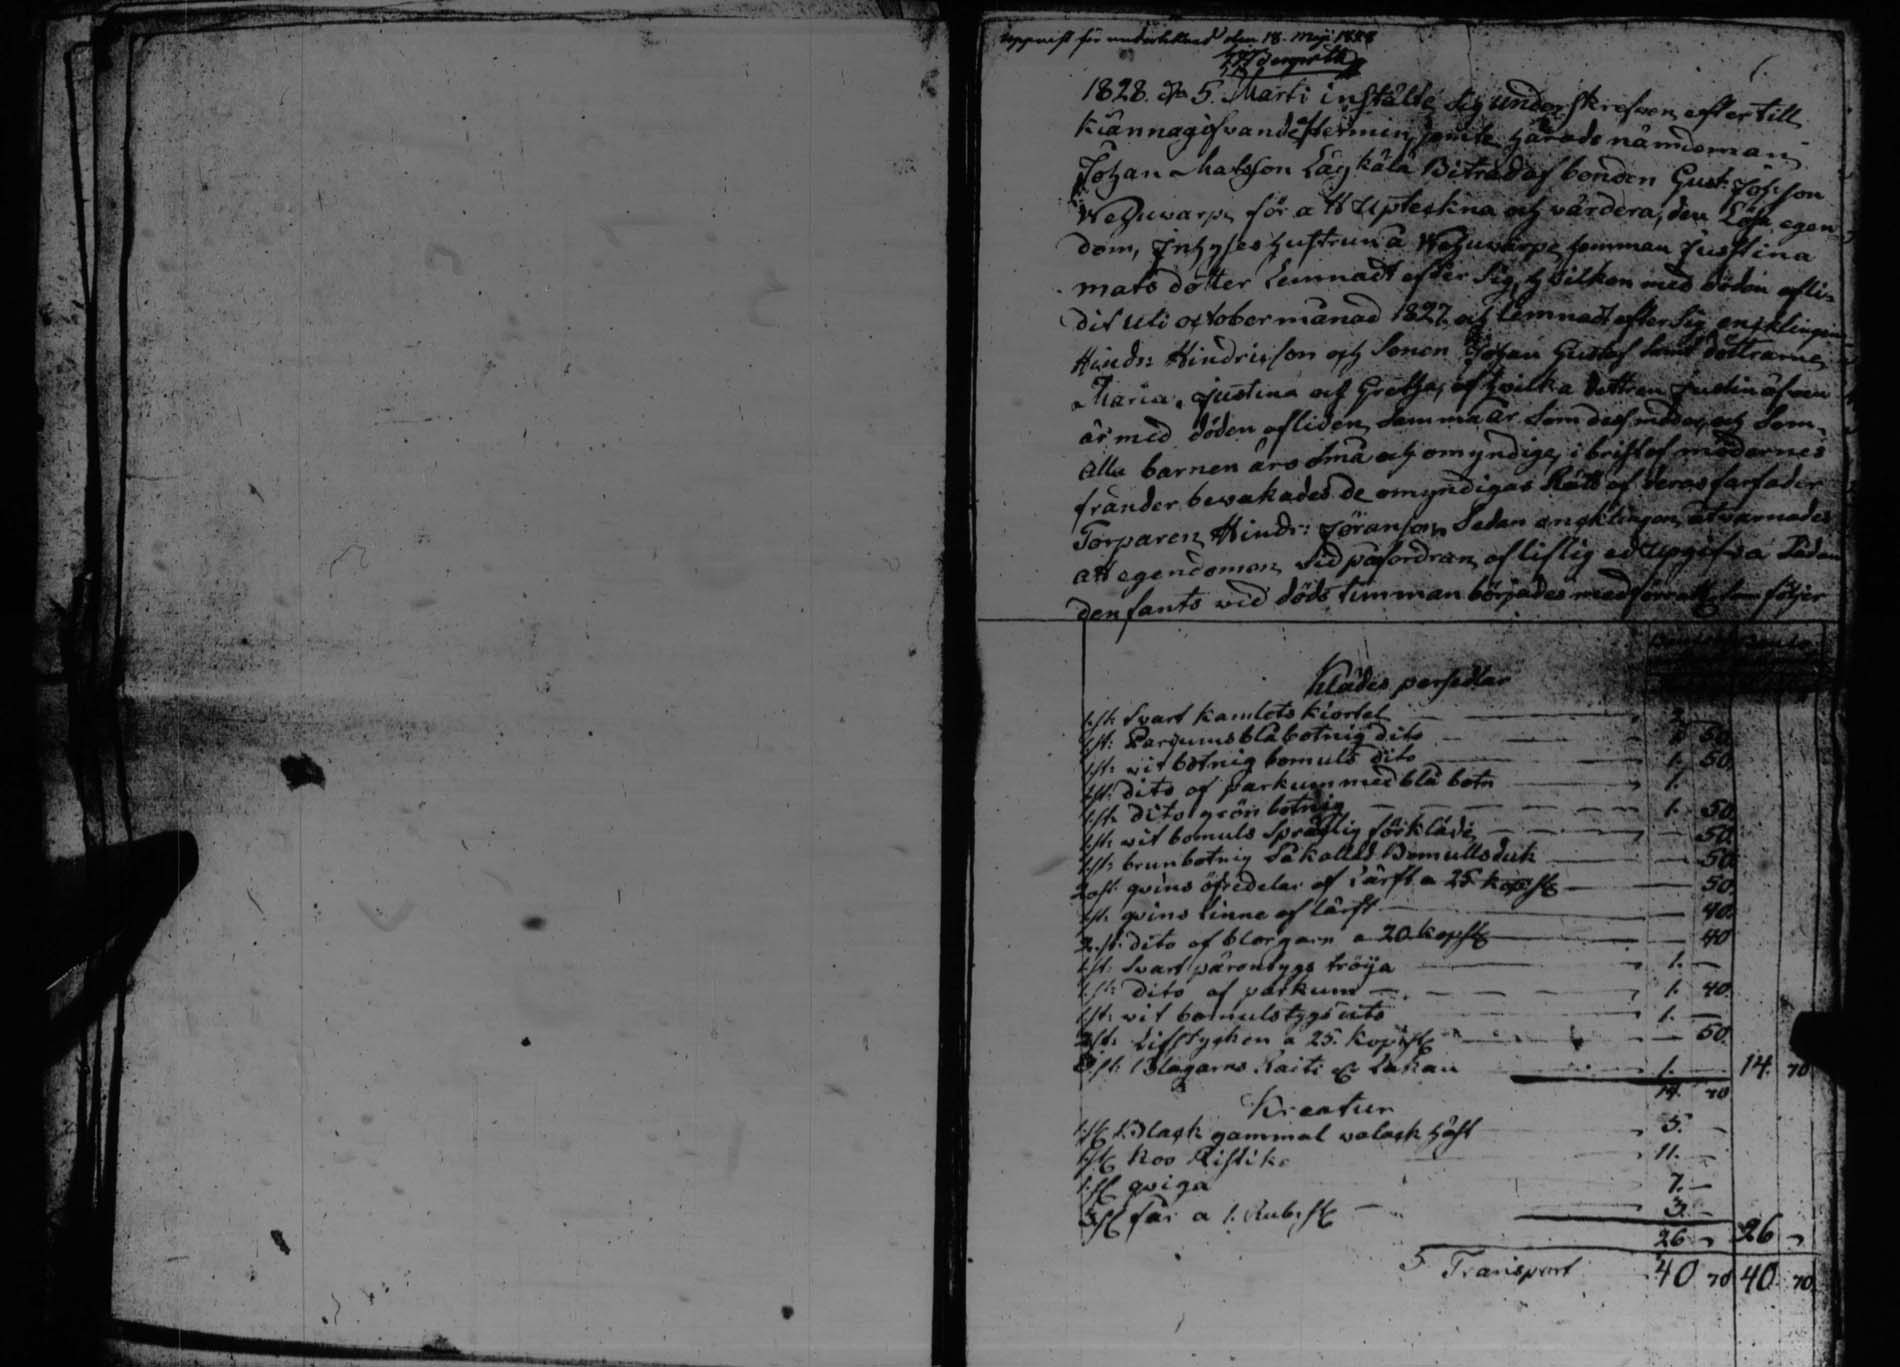 uppvist för undertecknad den 18. Maji 1828
1828 d. 5. Marti instälte sig underskrefven, efter till
kiännagifvande termin, jemte härads nämdeman
Johan Matsson Läykälä Biträd af bonden Gust: Joh:son
för att upteckna och värdera, den Lösa egen
dom, Inhyses hustrun å hemman Justina
mats dotter Lemnadt efter sig, hvilken med döden afli-
dit uti october månad 1827 och lemnadt efter sig enklingen
Hindr: Hindricson och Sonen Johan Gustaf samt döttrarne
Maria, Justina och Gretha, af hvilka dottren Justina äfven
är med döden afliden samma år som des moder, och som
alla barnen äro små och omyndige, i brist af modernes
fränder bevakades de omyndigas Rätt af deras farfader
Torparen Hindr: Jöranson, Sedan enklingen åtvarnades
att egendomen vid påfordran af liflig ed upgifva Sådan
den fants vid döds timman börjades med förrätt: som följer
Klädes persedlar
1. st: Svart kamlots kiortel 2. —
1 st: Parqums blåbotnig dito 50
1 st: vit botnig bomuls dito 1. 50.
1 st: dito af parkum med blå botn 1. —
1 st: dito grön botnig 1. 50
1 st: vit bomuls Spräklig förkläde — 50.
1 st: brunbotnig Så kallad Bomullsduk — 50
2 st: qvins öfvedelar af Lärft a 25 kop: st — 50.
1 st. qvins Linne af lärft — 40.
2. st: dito af blorgarn a 20 kop st — 40
1 st: Svart tröija 1. —
1 st: dito af parkum 1. 40.
1 st: vit bomulstygs dito 1. —
2 st: Lifstyken a 25. kop: st — 50.
3 st: Blagarns Raiti och Lakan 1. — 14. 70
14. 70
Kreatur
1. st Black gammal valack häst 5. —
1 st Koo Ristike 11. —
1. st qviga 7. —
3. st får a 1. Rub: st 3. —
26 — 26 —
Transport 40 70 40. 70